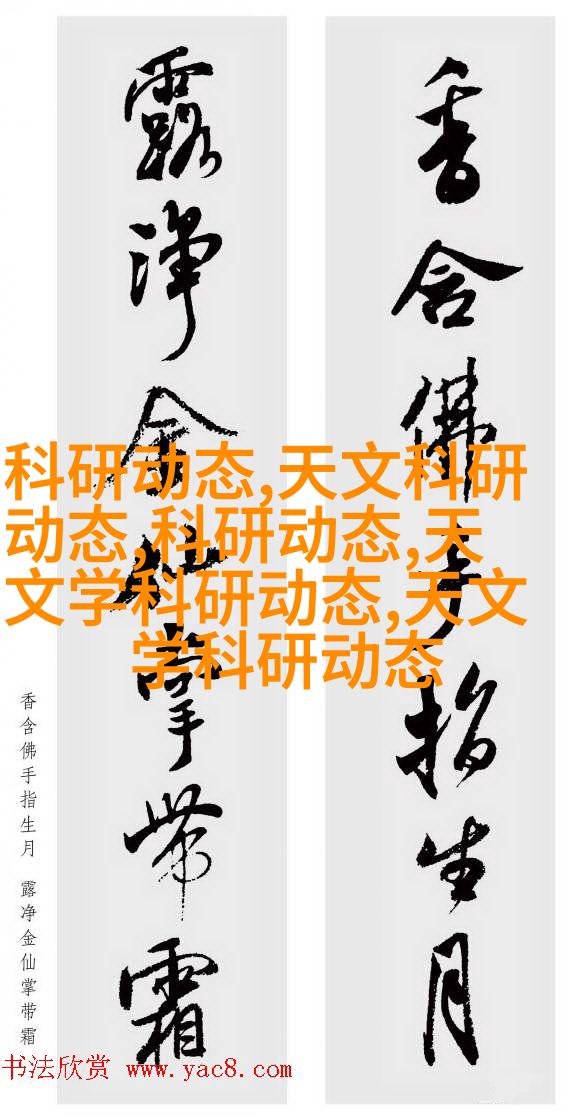 香含佛手指生月
露净金仙掌带霜
科研动态,天文科研
动态,科研动态,天
文学科研动态,天文
学科研动态
香含佛手指生月 露净金仙掌带霜
书法欣赏 www.yac8.com